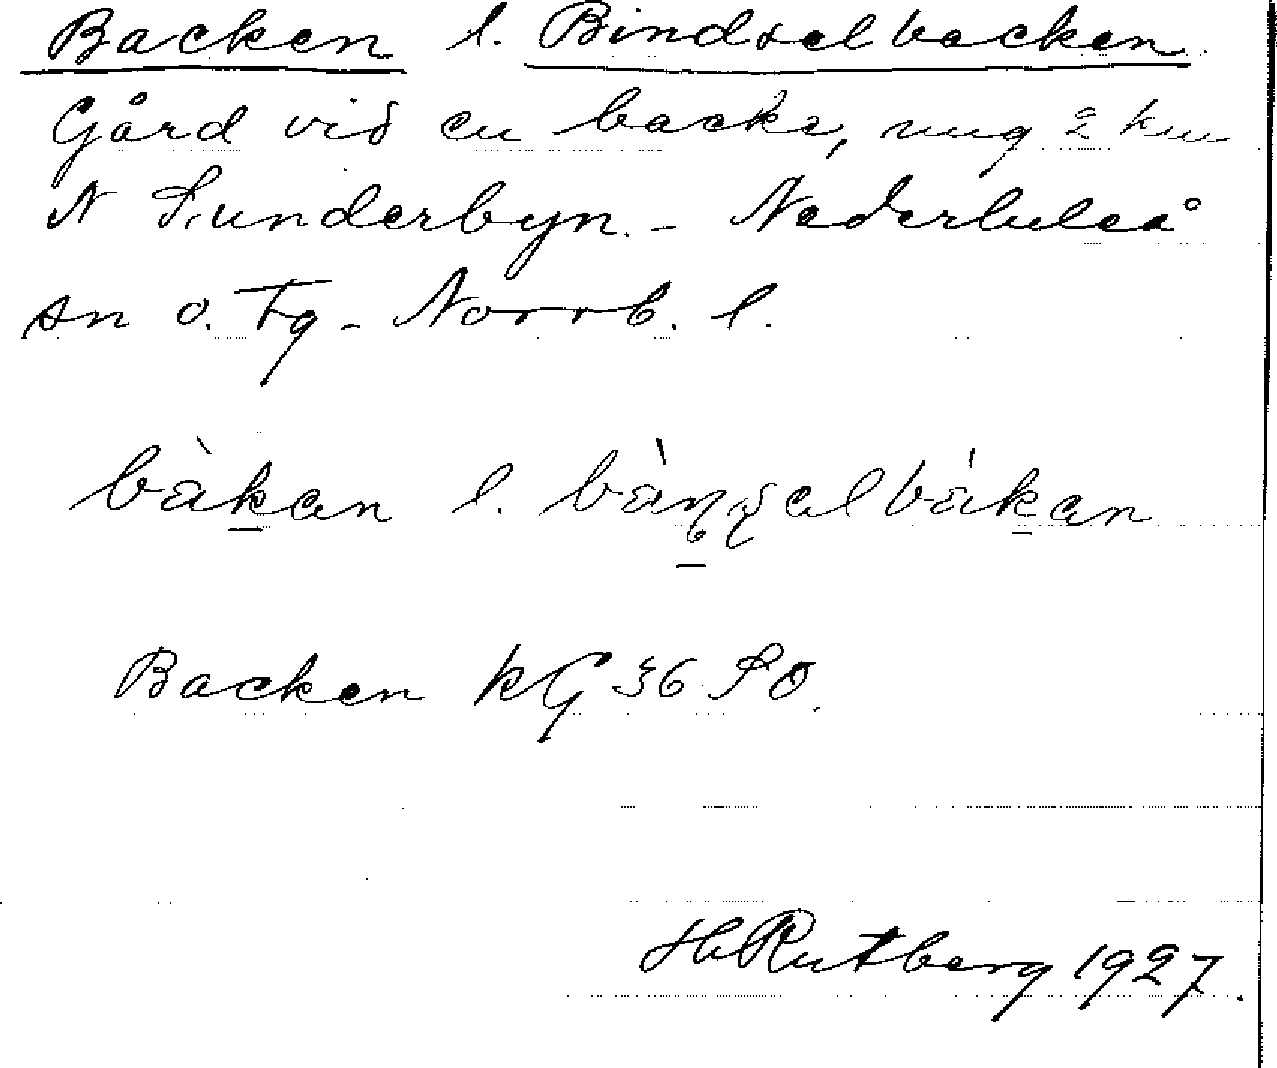 Backen l. Bindselbacken
Gård vid en backe, ung 2 km
N Sunderbyn. - Nederluleå
sn o. Tg - Norrb. l.
bàkan l. bàŋsəlbàkan
Backen KG 36 SO.
H Rutberg 1927.